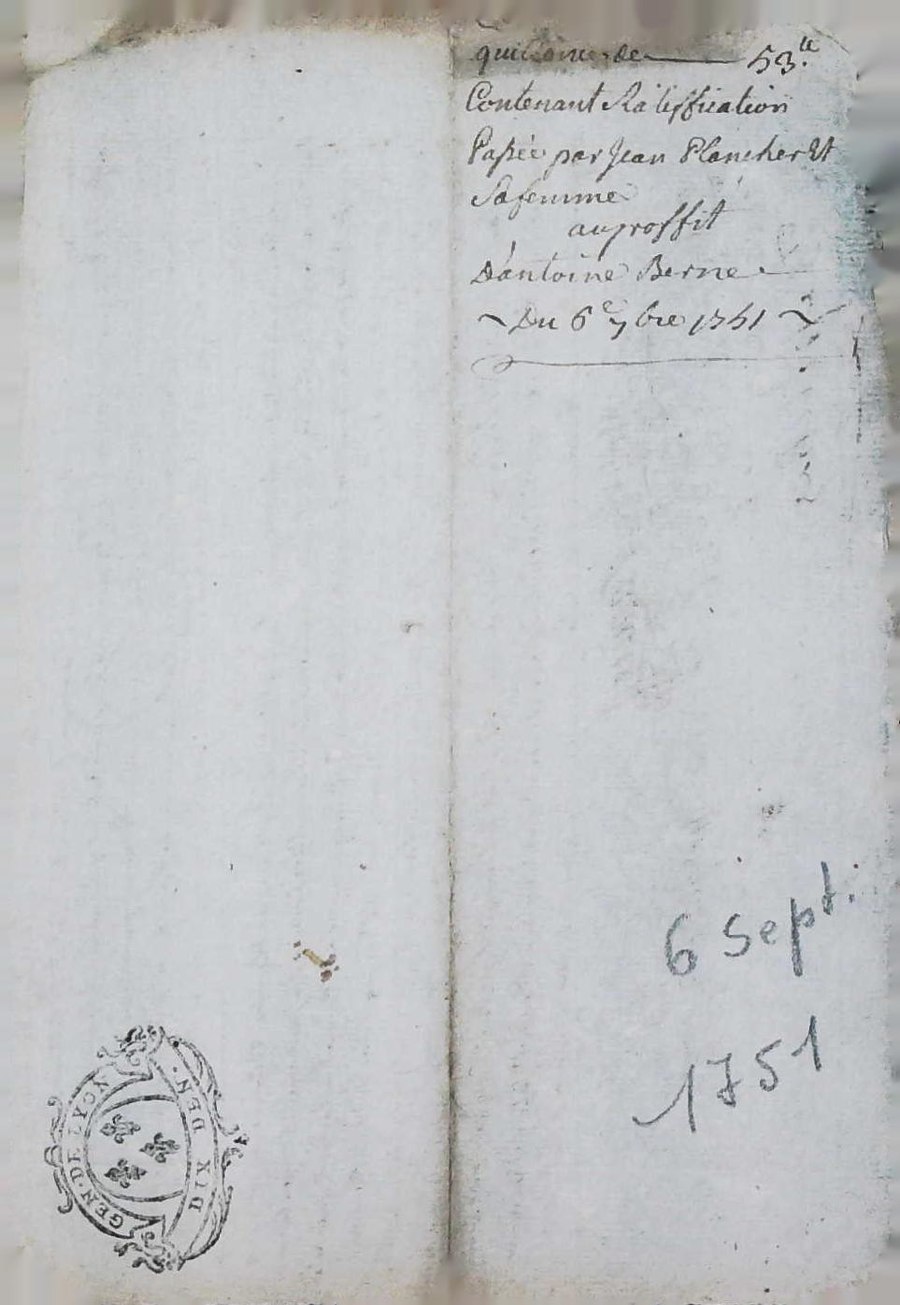 quittance de 53.lt
Contenant Ratiffication
Passée par Jean Plancher Et
Sa femme
au proffit
D'antoine Berne
~ Du 6e 7bre 1751 ~
6 Sept.
1751
GEN. DE LYON
DIX DEN.